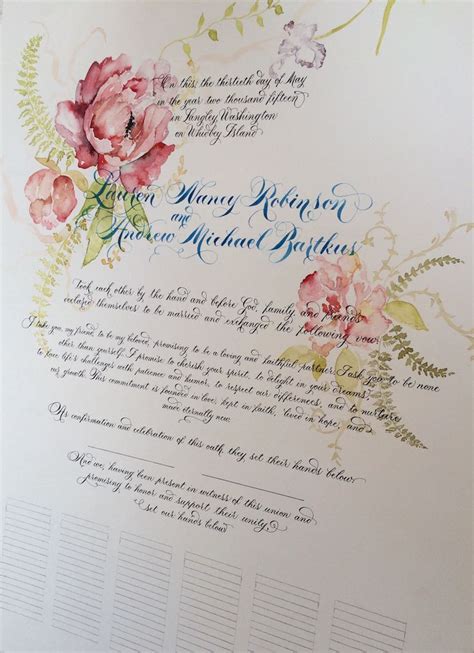 On this, the thirtieth day of May
in the year two thousand fifteen
in Langley Washington
on Whidbey Island
Lauren Nancy Robinson
and
Andrew Michael Bartkus
Took each other by the hand and before God, family, and friends
declared themselves to be married and exchanged the following vow:
I take you, my friend, to be my beloved, promising to be a loving and faithful partner. I ask you to be none
other than yourself. I promise to cherish your spirit, to delight in your dreams,
to face life's challenges with patience and humor, to respect our differences, and to nurture
our growth. This commitment is founded in love, kept in faith, lived in hope, and
made eternally new.
As confirmation and celebration of this oath, they set their hands below:
And we, having been present in witness of this union and
promising to honor and support their unity,
set our hands below